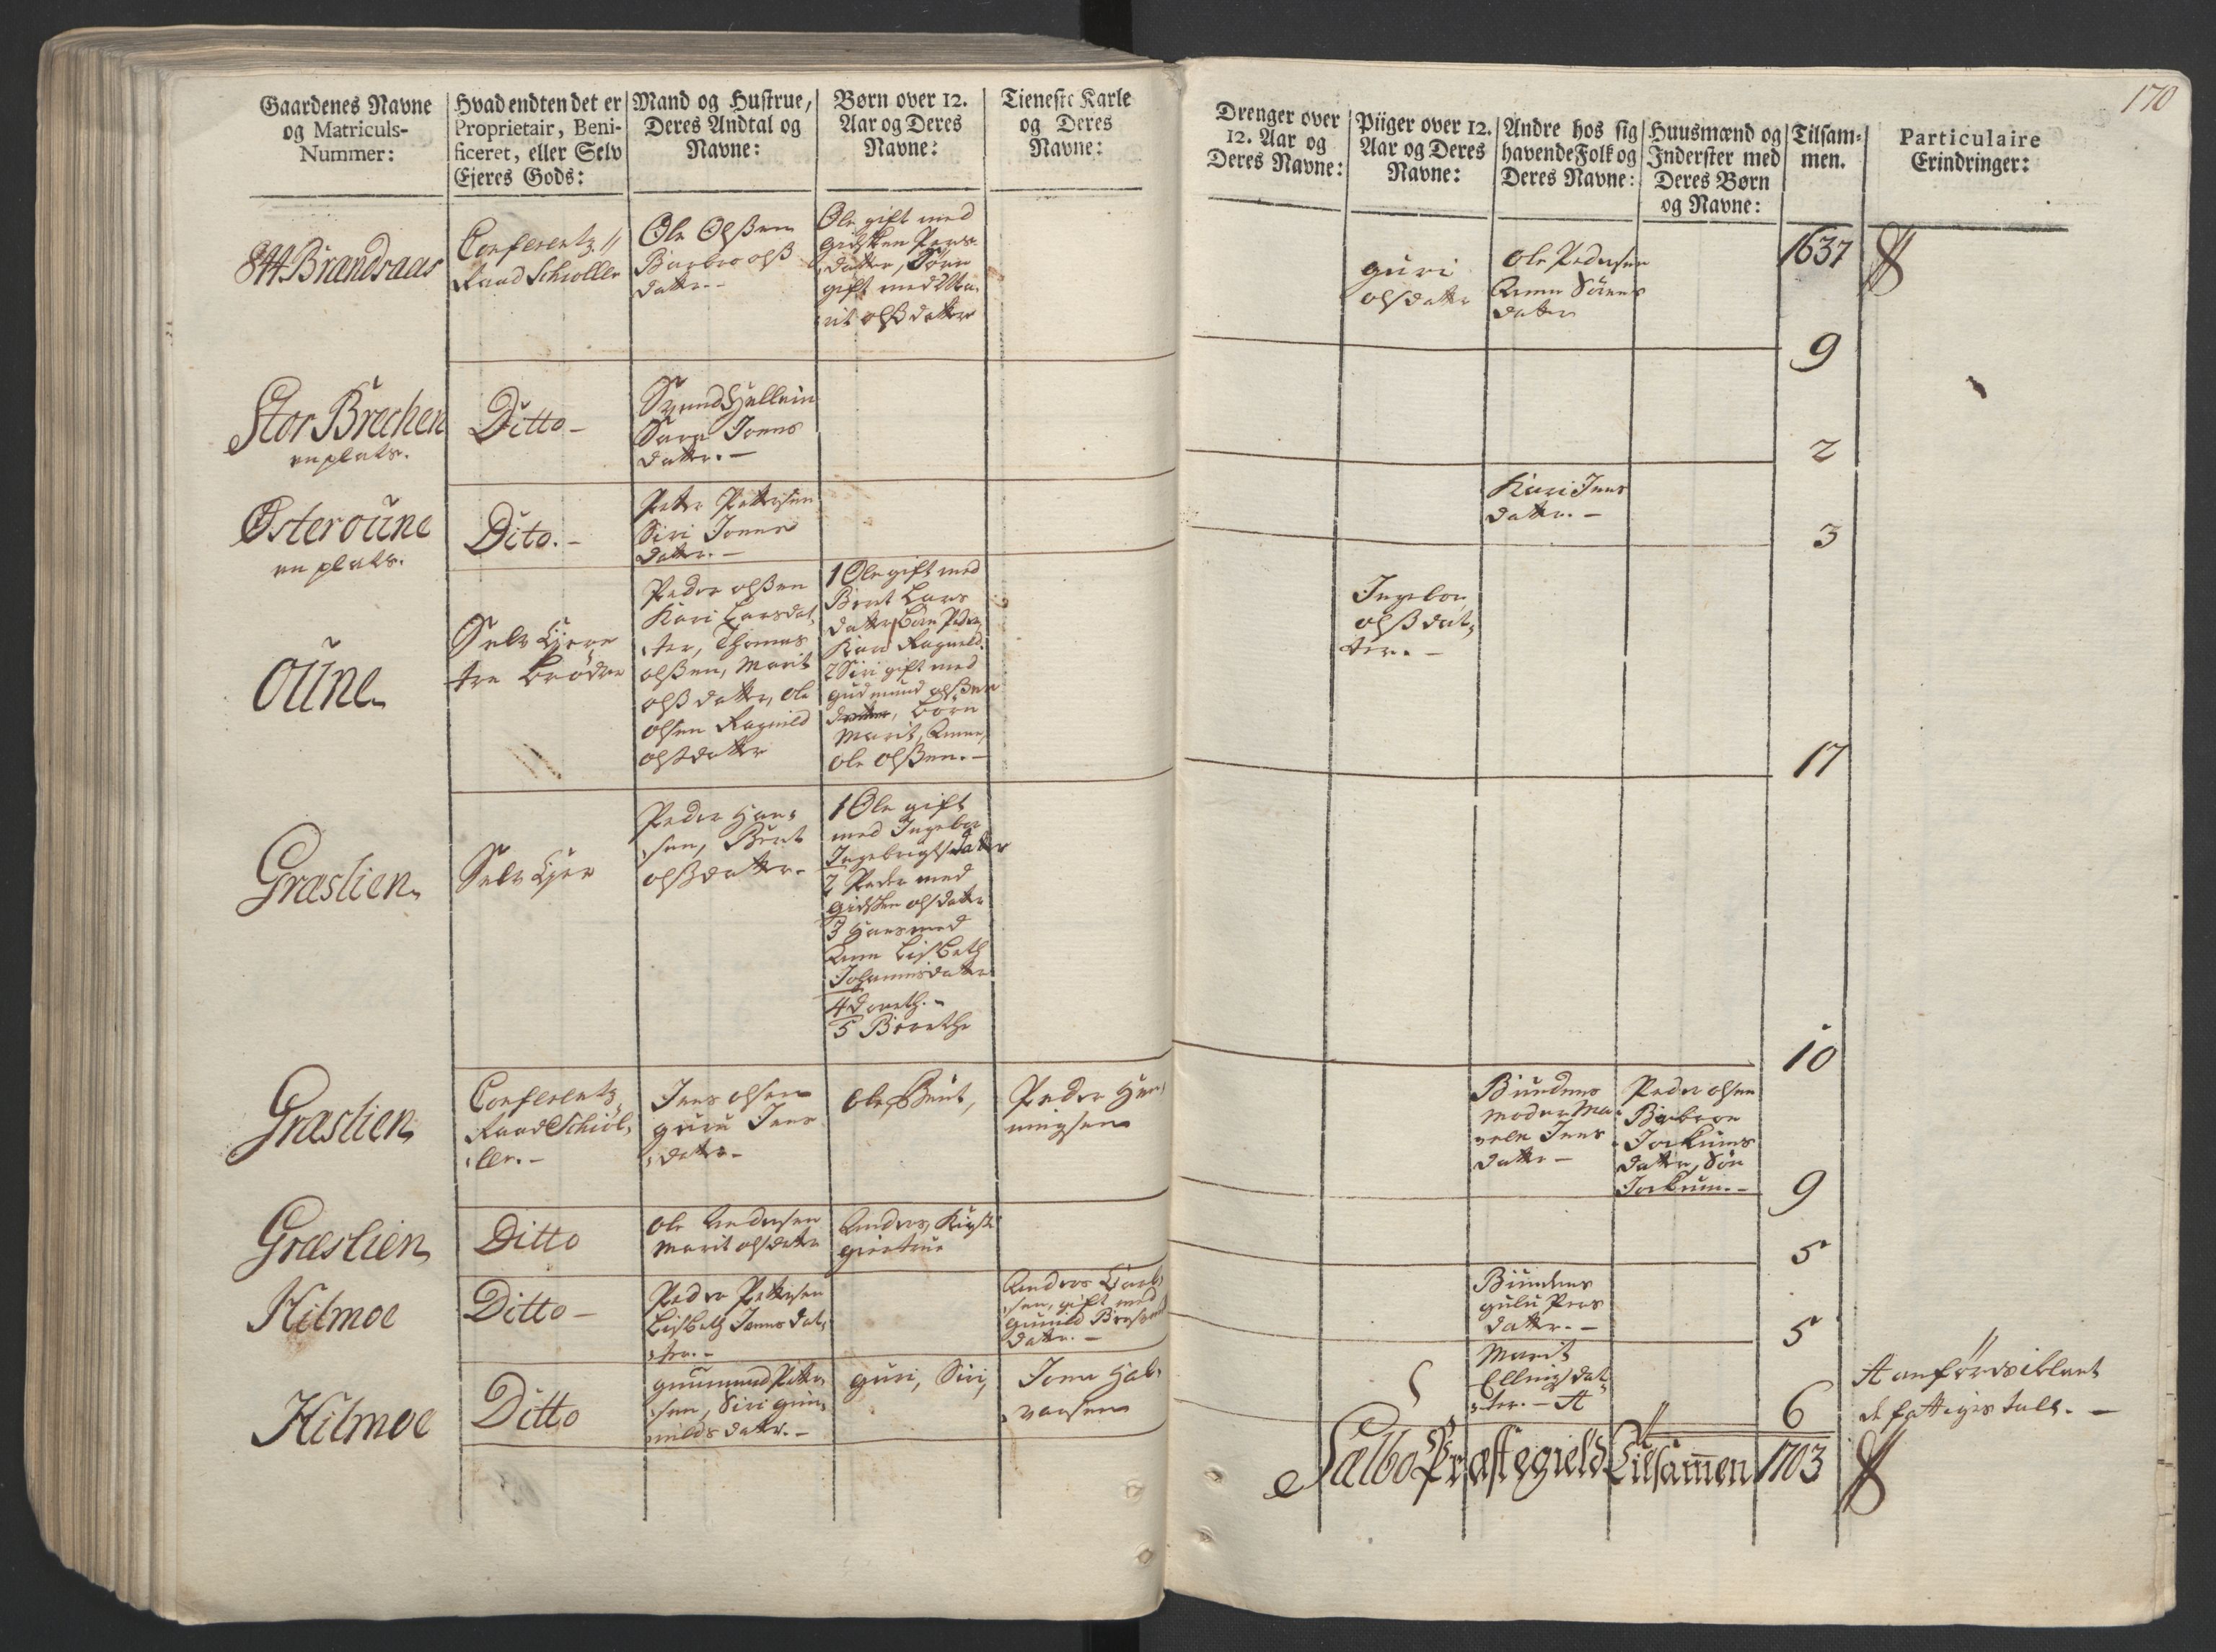 170
Gaardenes Navne
og Matriculs-
Nummer:
Hvad endten det er
Proprietair, Beni-
ficeret, eller Selv
Ejeres Gods:
Mand og Hustrue,
Deres Andtal og
Navne:
Børn over 12.
Aar og Deres
Navne:
Tieneste Karle
og Deres
Navne:
Drenger over
12. Aar og
Deres Navne:
Piiger over 12.
Aar og Deres
Navne:
Andre hos sig
havende Folk og
Deres Navne:
Huusmænd og
Inderster med
Deres Børn
og Navne:
Tilsam-
men.
Particulaire
Erindringer:
Brandsaas
Conferentz
Raad Schiøller
Ole Olßen
Barbro olß
datter
Ole gift med
Gidsken Pers
datter, Sören
gift med Ma-
rit olßdatter
guri
olsdatter
Ole Pedersen
Anne Sörens
datter
1637
9
Stor Brechen
en plats.
Ditto -
Svend Hallein
Sara Joens
datter. -
2
Østeroune
en plats.
Dito. -
Peter Pettersen
Siri Joens
datter. -
Kari Jens
datter. -
3
Oune
Selv Ejere
tre brödre
Peder olßen
Kari Larsdat
ter, Thomas
olßen, Marit
olßdatter, ole
olsen Ragnild
olsdatter
1 Ole gift med
Berit Lars
datter börn Peder,
Kari Ragnild.
2 Siri gift med
gudmund olßen
börn
Marit, Anne,
ole olßen. -
Ingebor
olßdat
ter. -
17
Græslien
Selv Ejer
Peder Han
sen, Berit
olßdatter.
1 Ole gift
med Ingebor
Ingebrigtsdatter
2 Peder med
Gidsken olsdatter
3 Hans med
Anne Lisbeth
Johannisdatter
4 Doreth. -
5 Berethe
10
Græslien
Conferentz
Raad Schiöl
ler. -
Jens olsen
guru Jens
datter -
Ole, Berit,
Peder Hen
ningsen
Bundens
moder Ma
rele Jens
datter -
Peder olsen
Barbroe
Jockums
datter, Sön
Jockum. -
9
Græslien
Ditto
Ole Andersen
Marit olsdatter
Anders, Kirsti
giertrue
5
Kilmoe
Ditto -
Peder Pettersen
Lisbeth Jonnsdat
ter. -
Anders
sen, gift med
gunild
datter. -
Bundens
gulu Pers
datter. -
5
Kilmoe
Ditto
gunmund Peter
sen, Siri gun
milds datter. -
guri, Siri,
Jonn Hal
vorsen
Marit
Ellingsdat
ter. - A
6
A anføres iblant
de fattiges tall. -
Sælbo Præstegield Tilsamen 1703